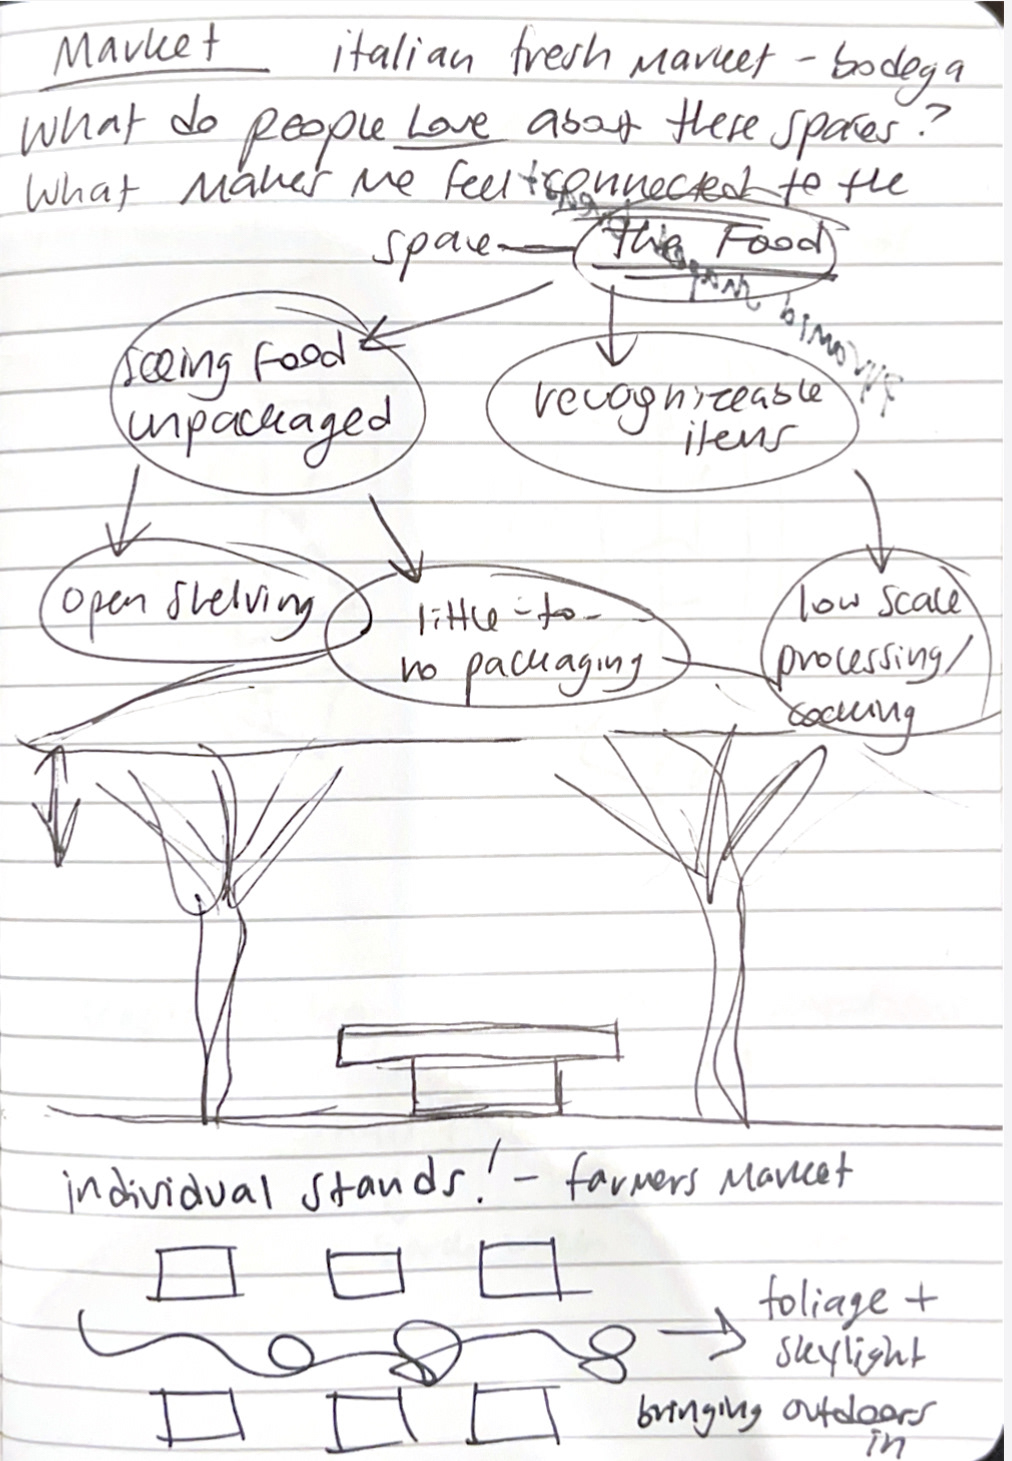 Market italian fresh market - bodega
What do people Love about these spaces?
What makes me feel connected to the
space — the Food
seeing food
unpackaged
recognizeable
items
open shelving
little-to-
no packaging
low scale
processing/
cooking
individual stands! - farmers market
foliage +
skylight
bringing outdoors
in